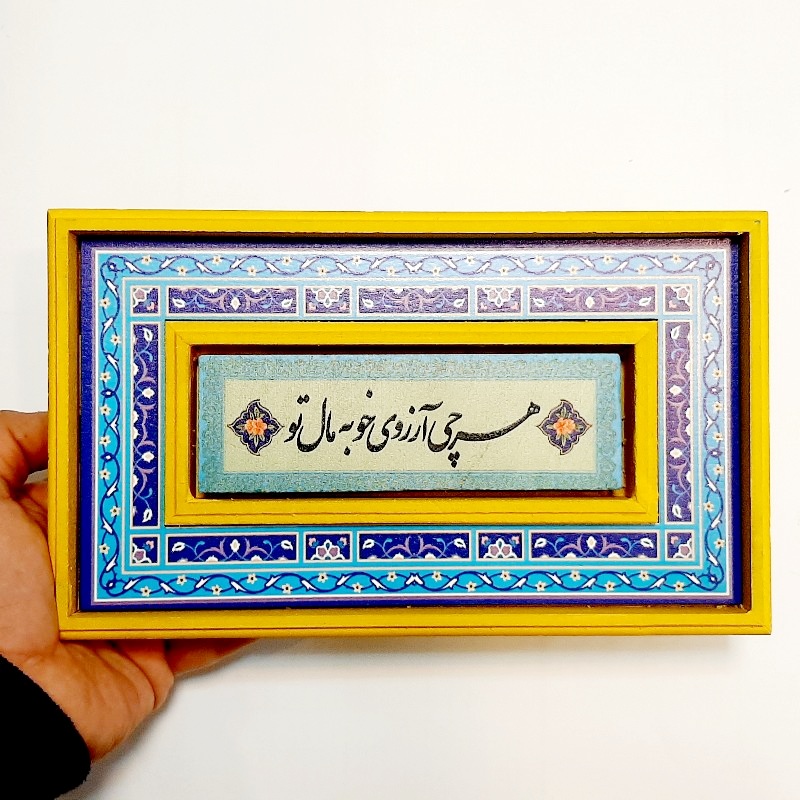 هر چی آرزوی خوبه مال تو